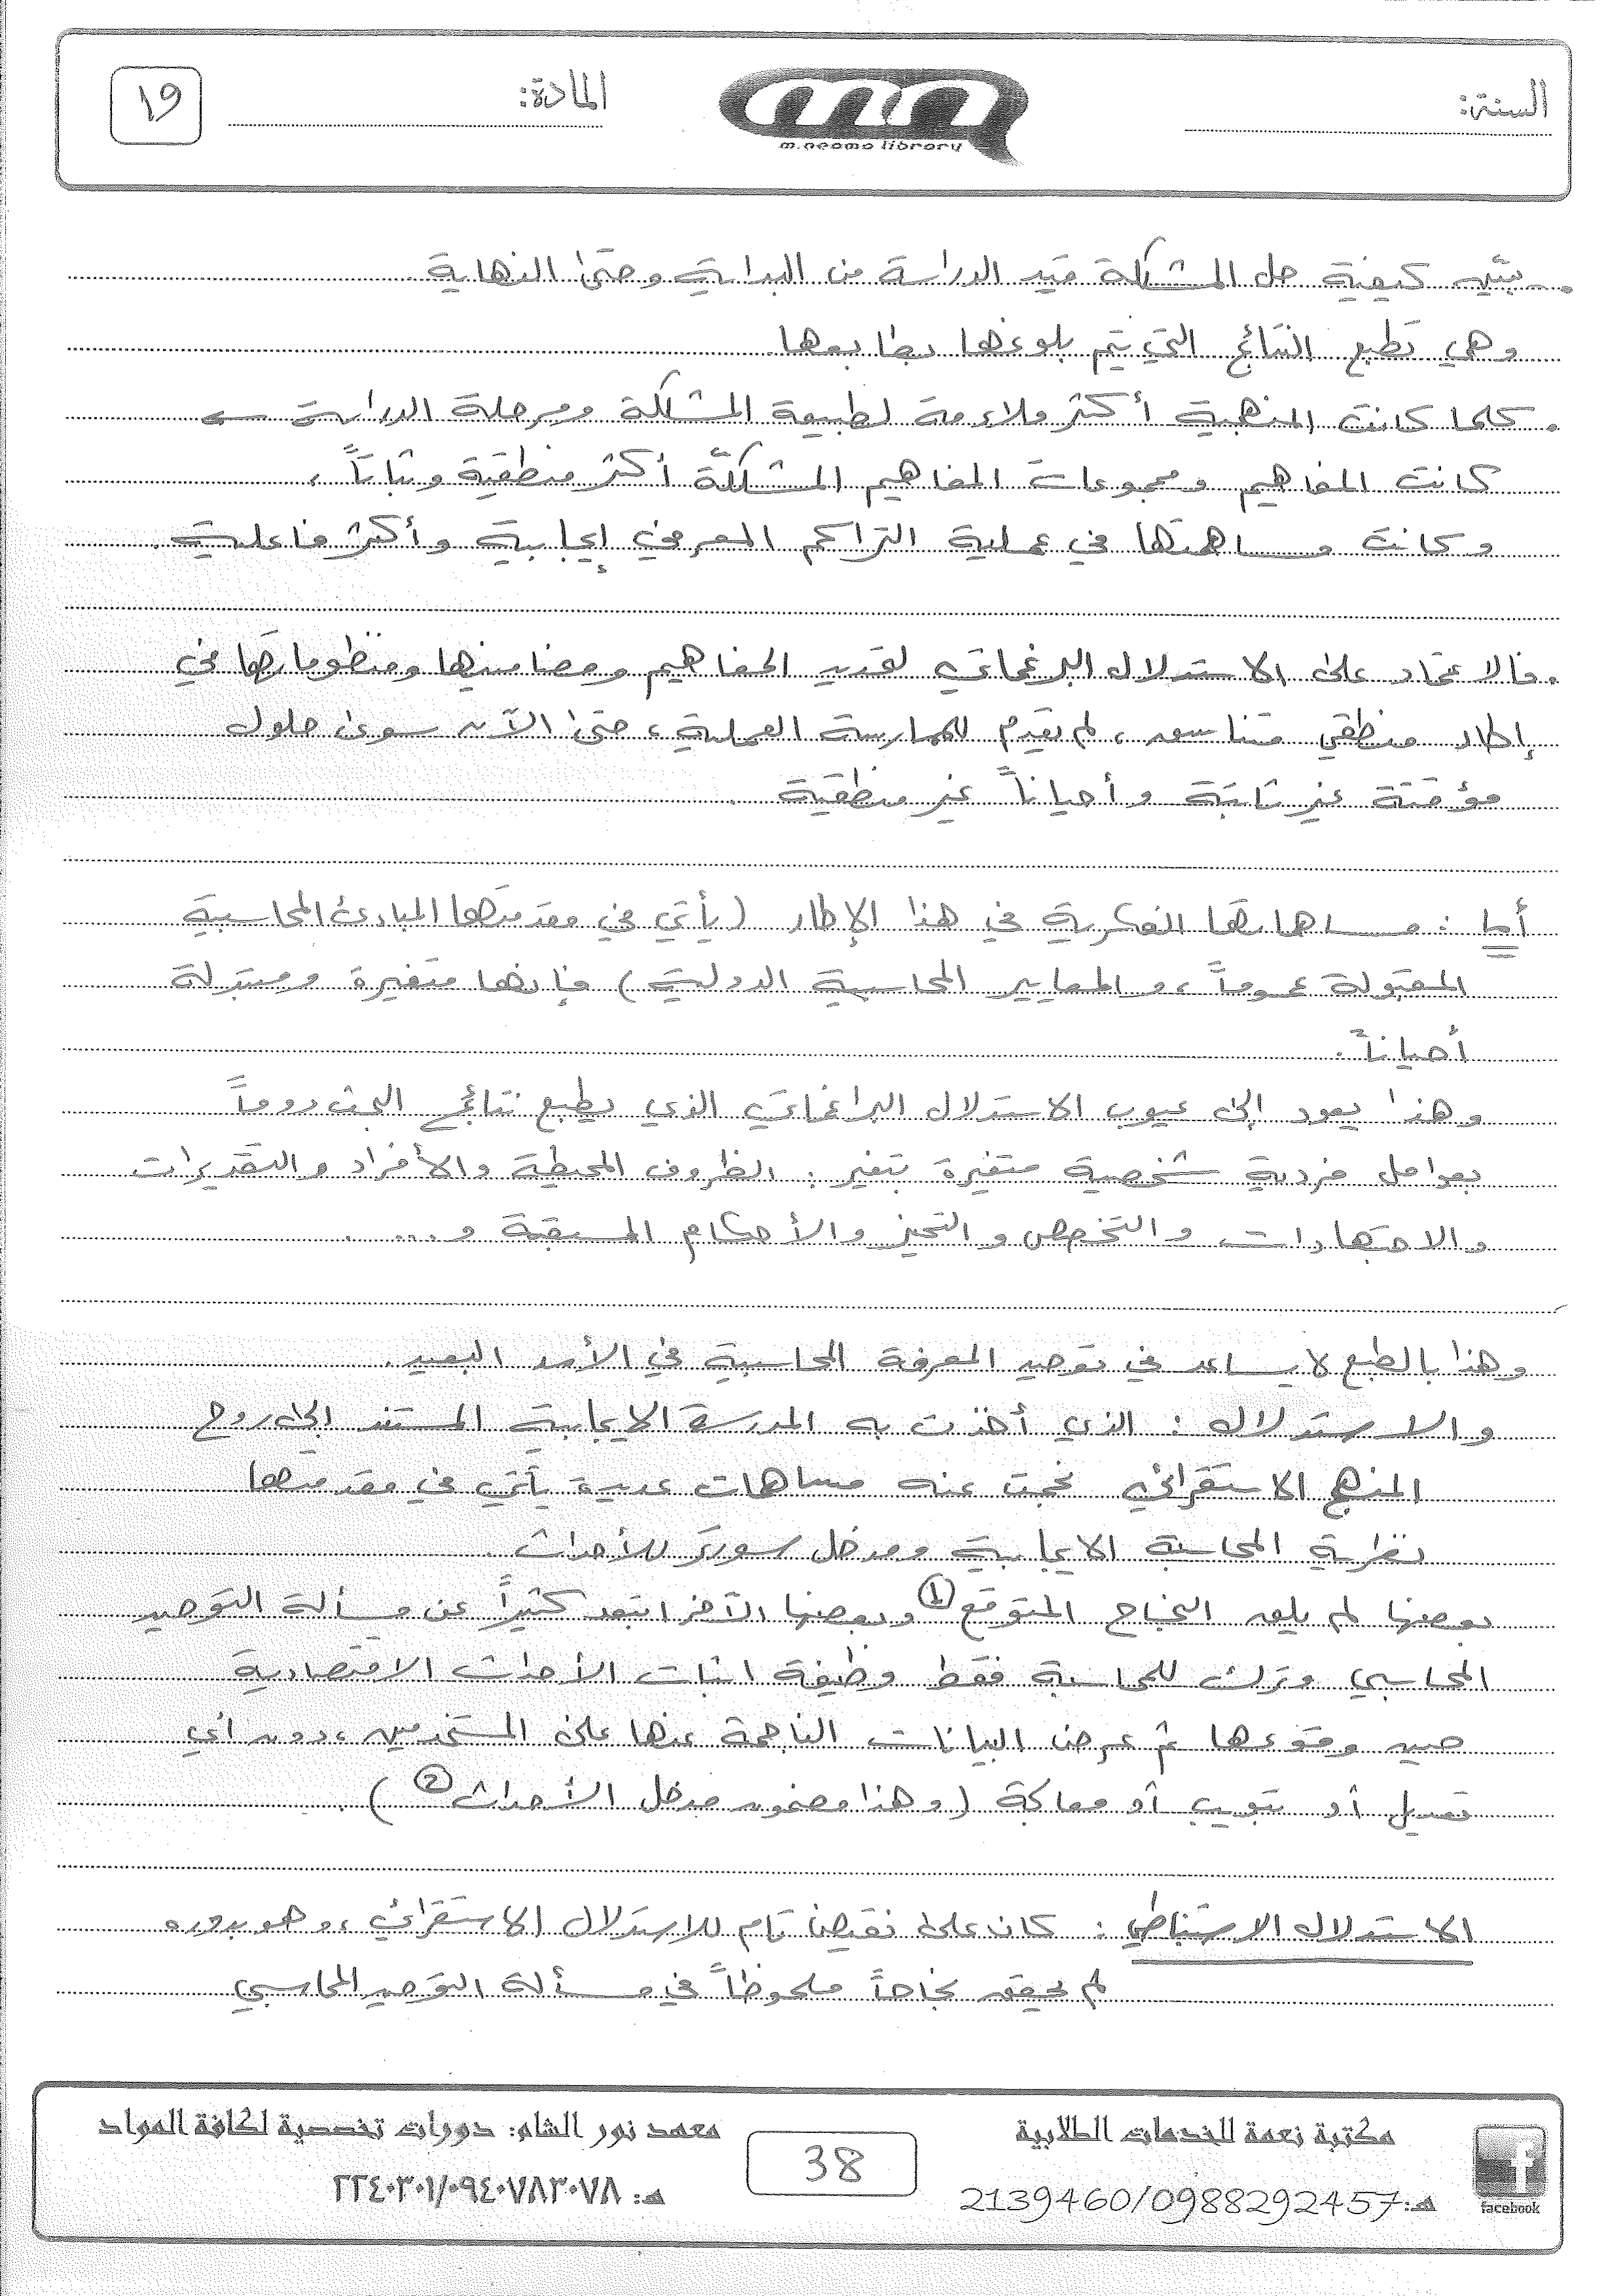 السنة:
m.neama library
المادة:
١٩
. تبيّن كيفية حل المشكلة قيد الدراسة من البداية وحتى النهاية
وهي تطبع النتائج التي يتم بلوغها بطابعها
. كلما كانت المنهجية أكثر ملاءمة لطبيعة المشكلة ومرحلة الدراسة ←
كانت المفاهيم ومجموعات المفاهيم المشكلّة أكثر منطقية وثباتاً ،
وكانت مساهمتها في عملية التراكم المعرفي إيجابية وأكثر فاعلية .
. فالاعتماد على الاستدلال البرغماتي لتقديم المفاهيم ومضامينها ومنظوماتها في
إطار منطقي متناسق ، لم تقدم للممارسة العملية ، حتى الآن سوى حلول
مؤقتة غير ثابتة وأحياناً غير منطقية .
أما : مساهماتها الفكرية في هذا الإطار (يأتي في مقدمتها المبادئ المحاسبية
المقبولة عموماً ، والمعايير المحاسبية الدولية) فإنها متغيرة ومتبدلة
أحياناً .
وهذا يعود إلى عيوب الاستدلال البراغماتي الذي يطبع نتائج البحث دوماً
بعوامل فردية شخصية متغيرة بتغير : الظروف المحيطة والأفراد والتقديرات
والاجتهادات والتخصص والتحيز والأحكام المسبقة و....
وهذا بالطبع لا يساعد في توحيد المعرفة المحاسبية في الأمد البعيد .
والاستدلال : الذي أخذت به المدرسة الايجابية المستند إلى روح
المنهج الاستقرائي نجمت عنه مساهمات عديدة يأتي في مقدمتها
نظرية المحاسبة الايجابية ومدخل سورتر للأحداث .
بعضها لم يلق النجاح المتوقع ① وبعضها الآخر ابتعد كثيراً عن مسألة التوحيد
المحاسبي وترك للمحاسبة فقط وظيفة اثبات الأحداث الاقتصادية
حين وقوعها ثم عرض البيانات الناجمة عنها على المستخدمين ، دون أي
تعديل أو تبويب أو معالجة (وهذا مضمون مدخل الأحداث ②) .
الاستدلال الاستنباطي : كان على نقيض تام للاستدلال الاستقرائي ، وهو بدوره
لم يحقق نجاحاً ملحوظاً في مسألة التوحيد المحاسبي
مكتبة نعمة للخدمات الطلابية
هـ: 2139460/0988292457
facebook
38
معهد نور الشام: دورات تخصصية لكافة المواد
هـ: ٢٢٤٠٣٠١/٠٩٤٠٧٨٣٠٧٨